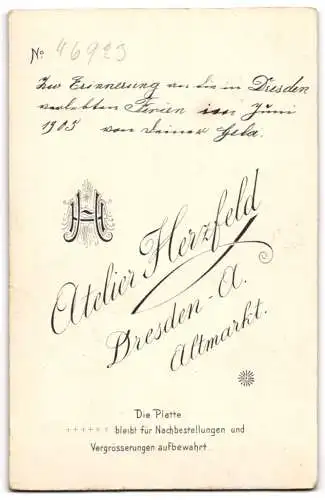 No 46923
Zur Erinnerung an die in Dresden
verlebten Ferien im Juni
1905 von deiner Gela.
H
Atelier Herzfeld
Dresden-A.
Altmarkt.
Die Platte
++++++ bleibt für Nachbestellungen und
Vergrösserungen aufbewahrt.